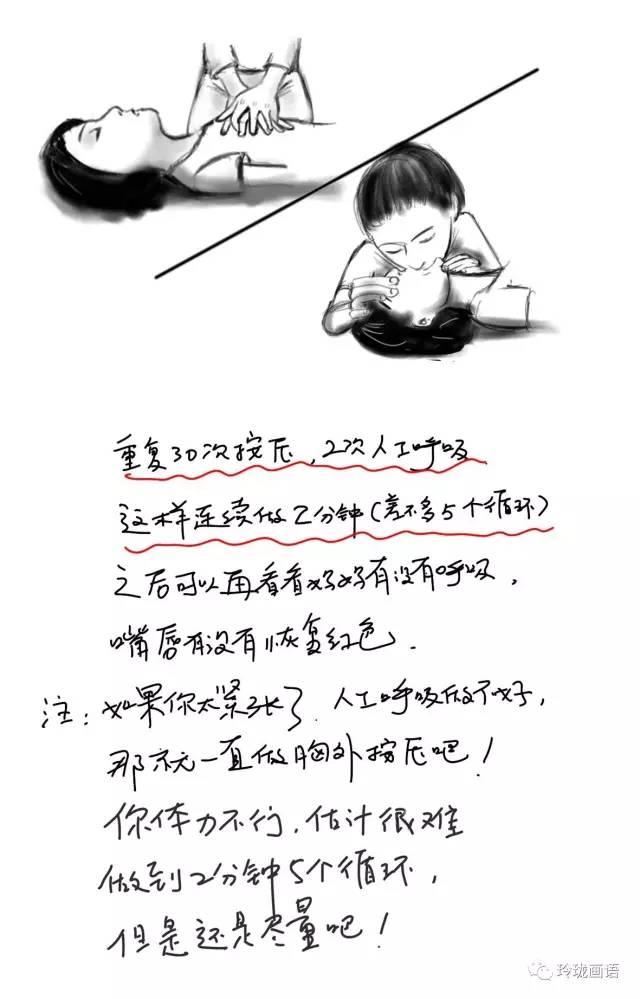 重复30次按压,2次人工呼吸
这样连续做2分钟(差不多5个循环)
之后可以再看看妈妈有没有呼吸,
嘴唇有没有恢复红色.
注:如果你太紧张了.人工呼吸做不好,
那就一直做胸外按压吧!
你体力不行,估计很难
做到2分钟5个循环,
但是还是尽量吧!
玲珑画语